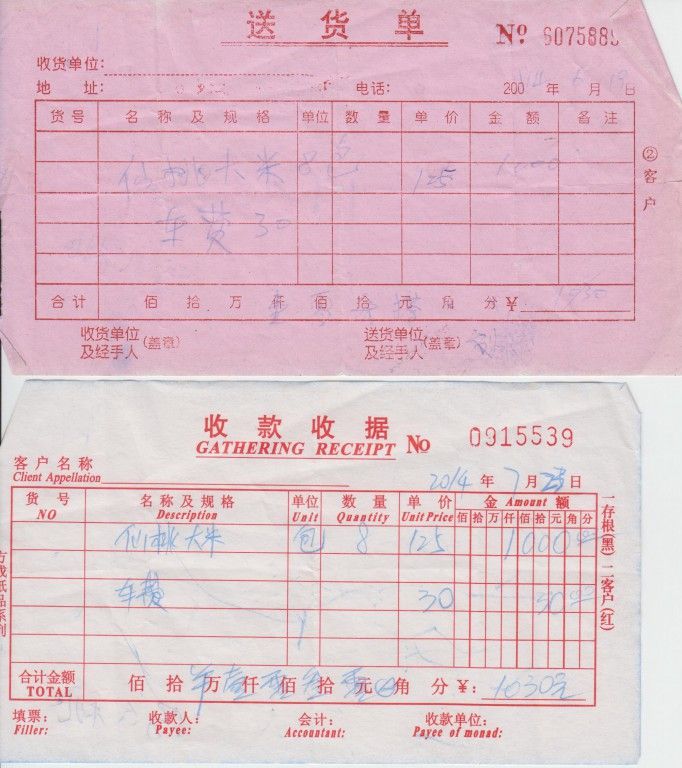 送货单
No 6075889
收货单位:
地 址: 电话: 2014 年 6 月 19 日
货号 名称及规格 单位 数量 单价 金额 备注
仙桃大米 8包 125 1000
车费 30
②客户
合计 佰 拾 万 仟 佰 拾 元 角 分 ¥: 1030
收货单位及经手人(盖章) 送货单位及经手人(盖章)
收款收据
GATHERING RECEIPT No 0915539
客户名称
Client Appellation 2014 年 7 月 日
货号 名称及规格 单位 数量 单价 金 Amount 额
NO Description Unit Quantity Unit Price 佰 拾 万 仟 佰 拾 元 角 分
仙桃大米 包 8 125 1000 00
车费 30 30 00
一存根(黑) 二客户(红)
合计金额 TOTAL 佰 拾 万 壹 仟 佰 拾 元 角 分 ¥: 1030元
填票: 收款人: 会计: 收款单位:
Filler: Payee: Accountant: Payee of monad: